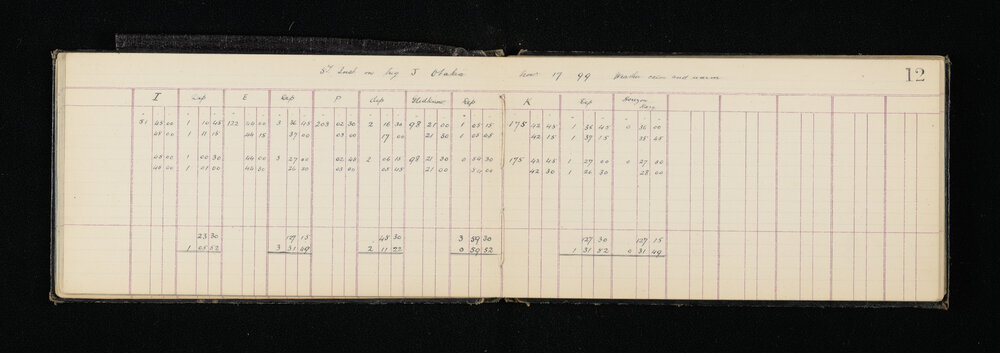 8" Inst on Trig J Otahu Nov 17 99 Weather calm and warm 12
I Dep E Dep P Dep Dep K Dep Horizon
51 45 00 1 10 45 122 44 00 3 36 45 203 02 30 2 16 30 98 21 00 1 05 15 175 42 45 1 36 45 0 36 00
45 00 1 11 15 44 15 37 00 03 00 17 00 21 30 1 05 45 42 15 1 37 15 35 45
45 00 1 00 30 44 00 3 27 00 02 45 2 06 15 98 21 30 0 54 30 175 43 45 1 27 00 0 27 30
46 00 1 01 00 44 30 26 30 03 00 05 45 21 00 54 00 42 30 1 26 30 28 00
23 30 127 15 45 30 3 59 30 127 30 127 15
1 05 52 3 31 49 2 11 22 0 59 52 1 31 52 0 31 49